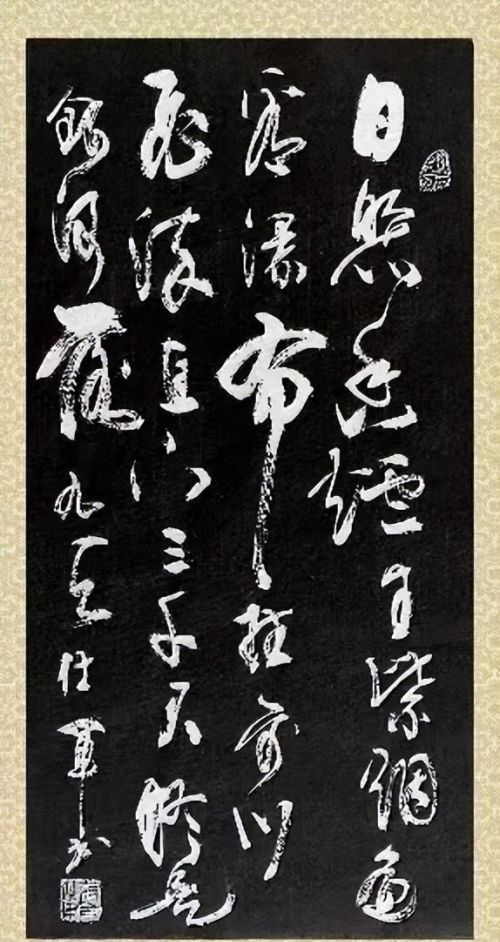 日照香爐生紫烟遥
看瀑布挂前川
飛流直下三千尺疑是
銀河落九天仕軍书